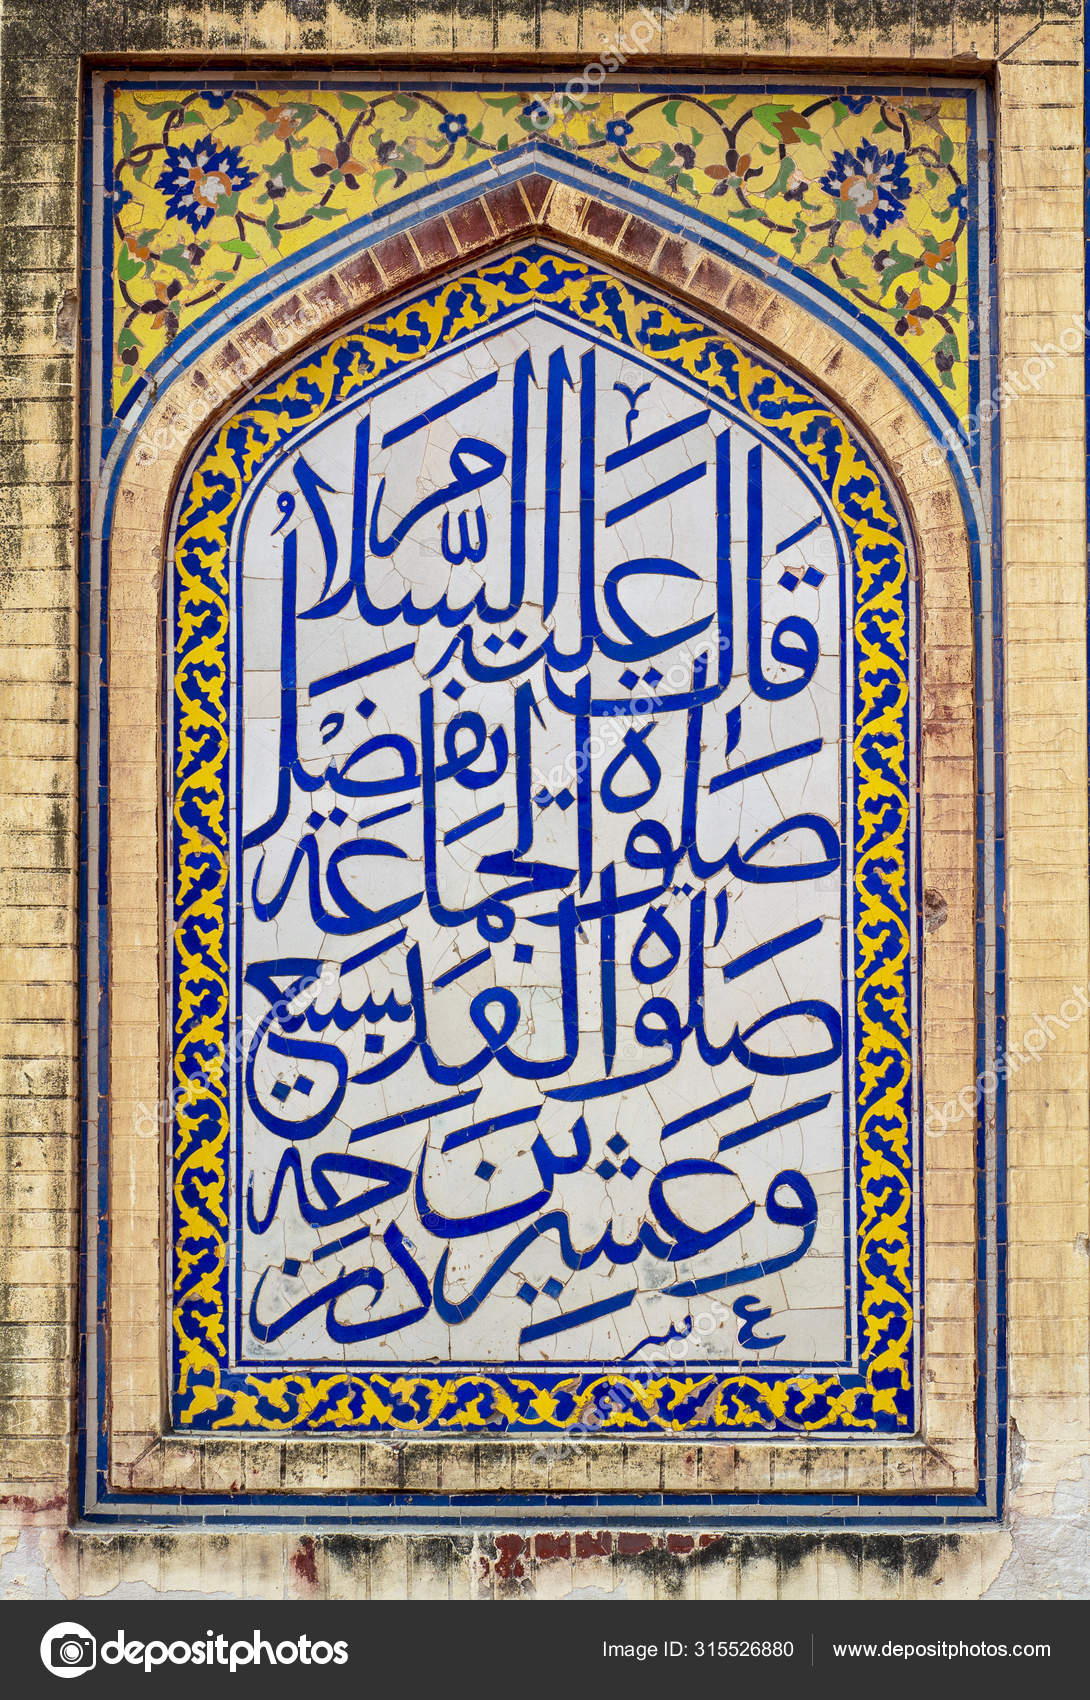 قال عليه السلام
صلوة الجماعه تفضل
صلوة الفذ بسبع
وعشرين درجه
depositphotos
Image ID: 315526880 www.depositphotos.com